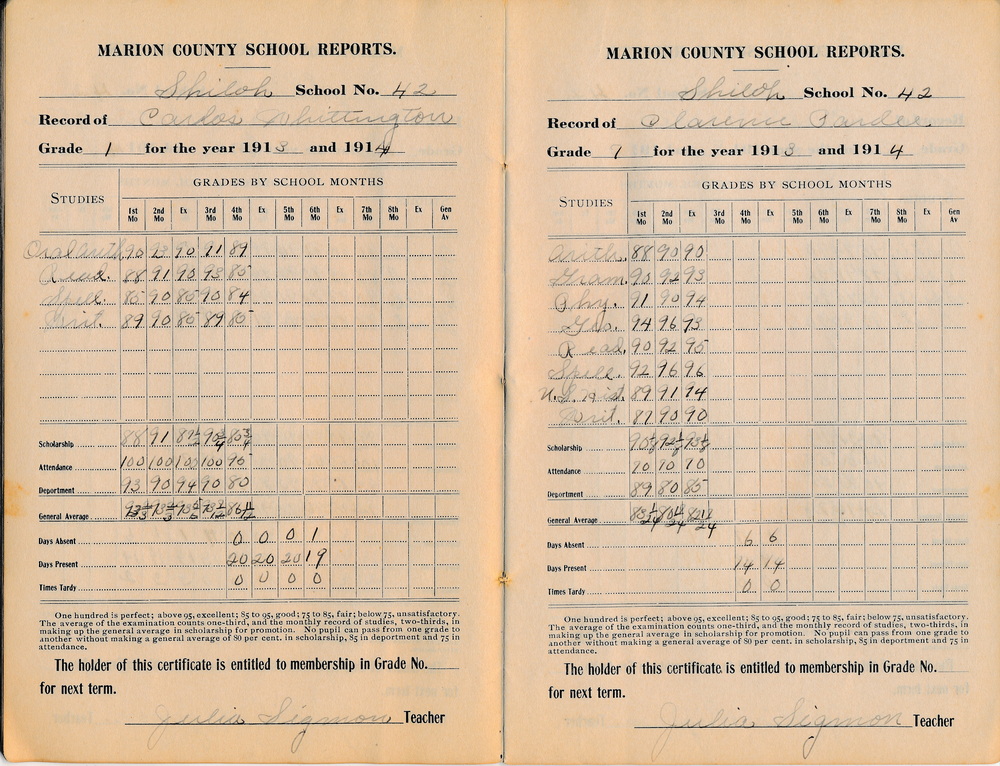 MARION COUNTY SCHOOL REPORTS.
Shiloh School No. 42
Record of Carlos Whittington
Grade 1 for the year 1913 and 1914
STUDIES
GRADES BY SCHOOL MONTHS
1st Mo 2nd Mo Ex 3rd Mo 4th Mo Ex 5th Mo 6th Mo Ex 7th Mo 8th Mo Ex Gen Av
Oral Arith 90 93 90 91 89
Read. 88 91 90 93 85
Spell. 85 90 85 90 84
Writ. 89 90 85 89 85
Scholarship 88 91 87½ 90¾ 85¾
Attendance 100 100 100 100 95
Department 93 90 94 90 80
General Average
Days Absent 0 0 0 1
Days Present 20 20 20 19
Times Tardy 0 0 0 0
One hundred is perfect; above 95, excellent; 85 to 95, good; 75 to 85, fair; below 75, unsatisfactory.
The average of the examination counts one-third, and the monthly record of studies, two-thirds, in
making up the general average in scholarship for promotion. No pupil can pass from one grade to
another without making a general average of 80 per cent. in scholarship, 85 in department and 75 in
attendance.
The holder of this certificate is entitled to membership in Grade No.
for next term.
Julia Sigmon Teacher
MARION COUNTY SCHOOL REPORTS.
Shiloh School No. 42
Record of Clarence Pardee
Grade 1 for the year 1913 and 1914
STUDIES
GRADES BY SCHOOL MONTHS
1st Mo 2nd Mo Ex 3rd Mo 4th Mo Ex 5th Mo 6th Mo Ex 7th Mo 8th Mo Ex Gen Av
Arith. 88 90 90
Gram. 90 92 93
Phy. 91 90 94
Geo. 94 96 93
Read. 90 92 95
Spell. 92 96 96
U.S. Hist. 89 91 94
Writ. 87 90 90
Scholarship
Attendance 70 70 70
Department 89 80 85
General Average
Days Absent 6 6
Days Present 14 14
Times Tardy 0 0
One hundred is perfect; above 95, excellent; 85 to 95, good; 75 to 85, fair; below 75, unsatisfactory.
The average of the examination counts one-third, and the monthly record of studies, two-thirds, in
making up the general average in scholarship for promotion. No pupil can pass from one grade to
another without making a general average of 80 per cent. in scholarship, 85 in department and 75 in
attendance.
The holder of this certificate is entitled to membership in Grade No.
for next term.
Julia Sigmon Teacher